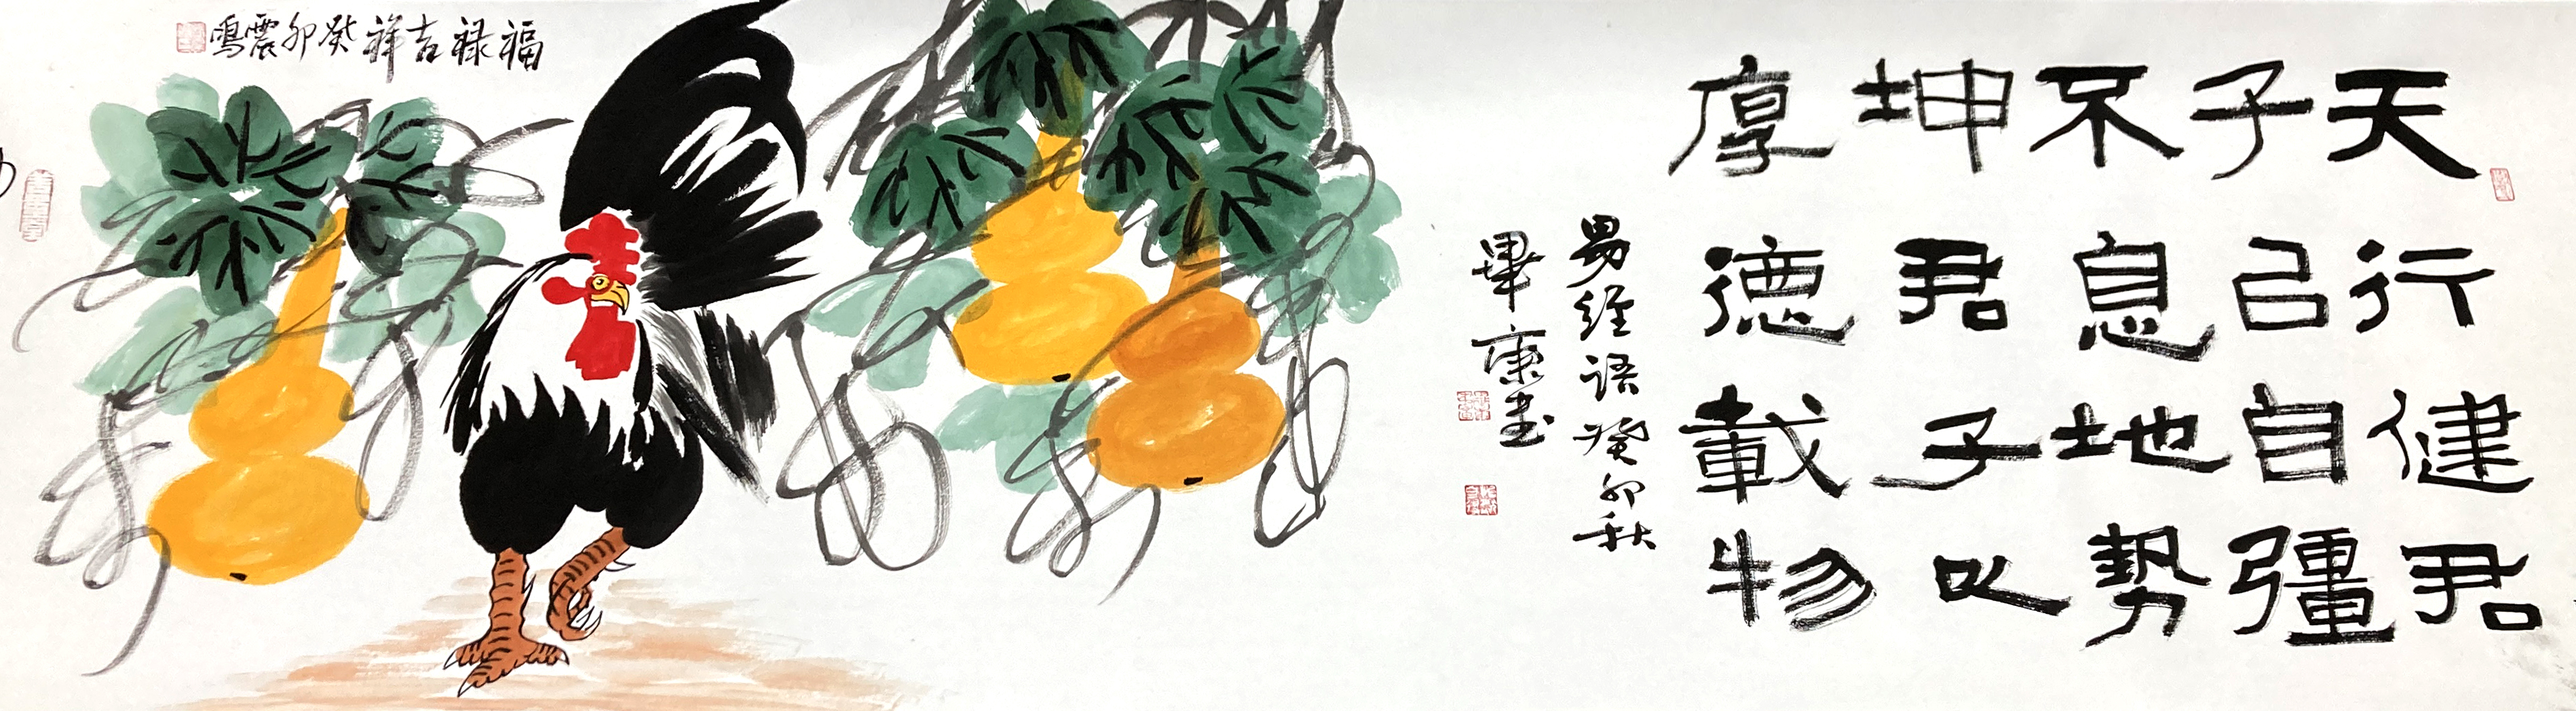 天行健君
子㠯自彊
不息地勢
坤君子以
厚德載物
易經語癸卯秋
畢康书
福禄吉祥癸卯震鳴